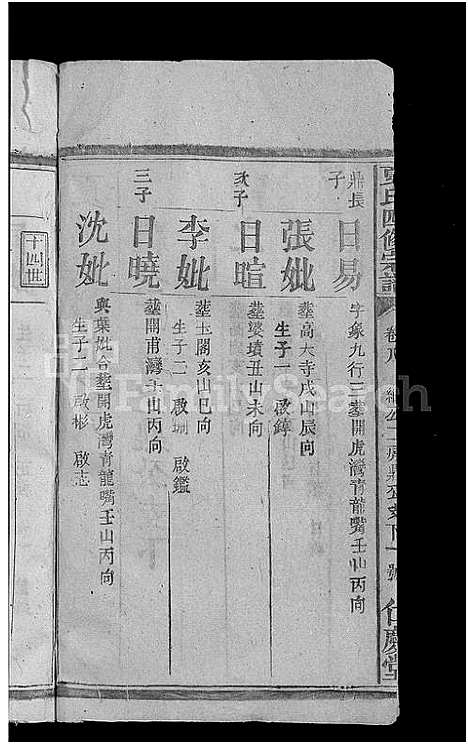 氏四修宗譜 卷八 仁慶堂
鼎長子
日易 字象九行一葬開虎灣青龍嘴壬山丙向
張妣 葬高大寺戌山辰向
生子一 啟錞
次子
日暄 葬婆墳丑山未向
李妣 葬玉閣亥山巳向
生子二 啟 啟鑑
三子
日曉 葬開甫灣壬山丙向
沈妣 與葉妣合葬開虎灣青龍嘴壬山丙向
生子二 啟彬 啟志
十四世
FamilySearch